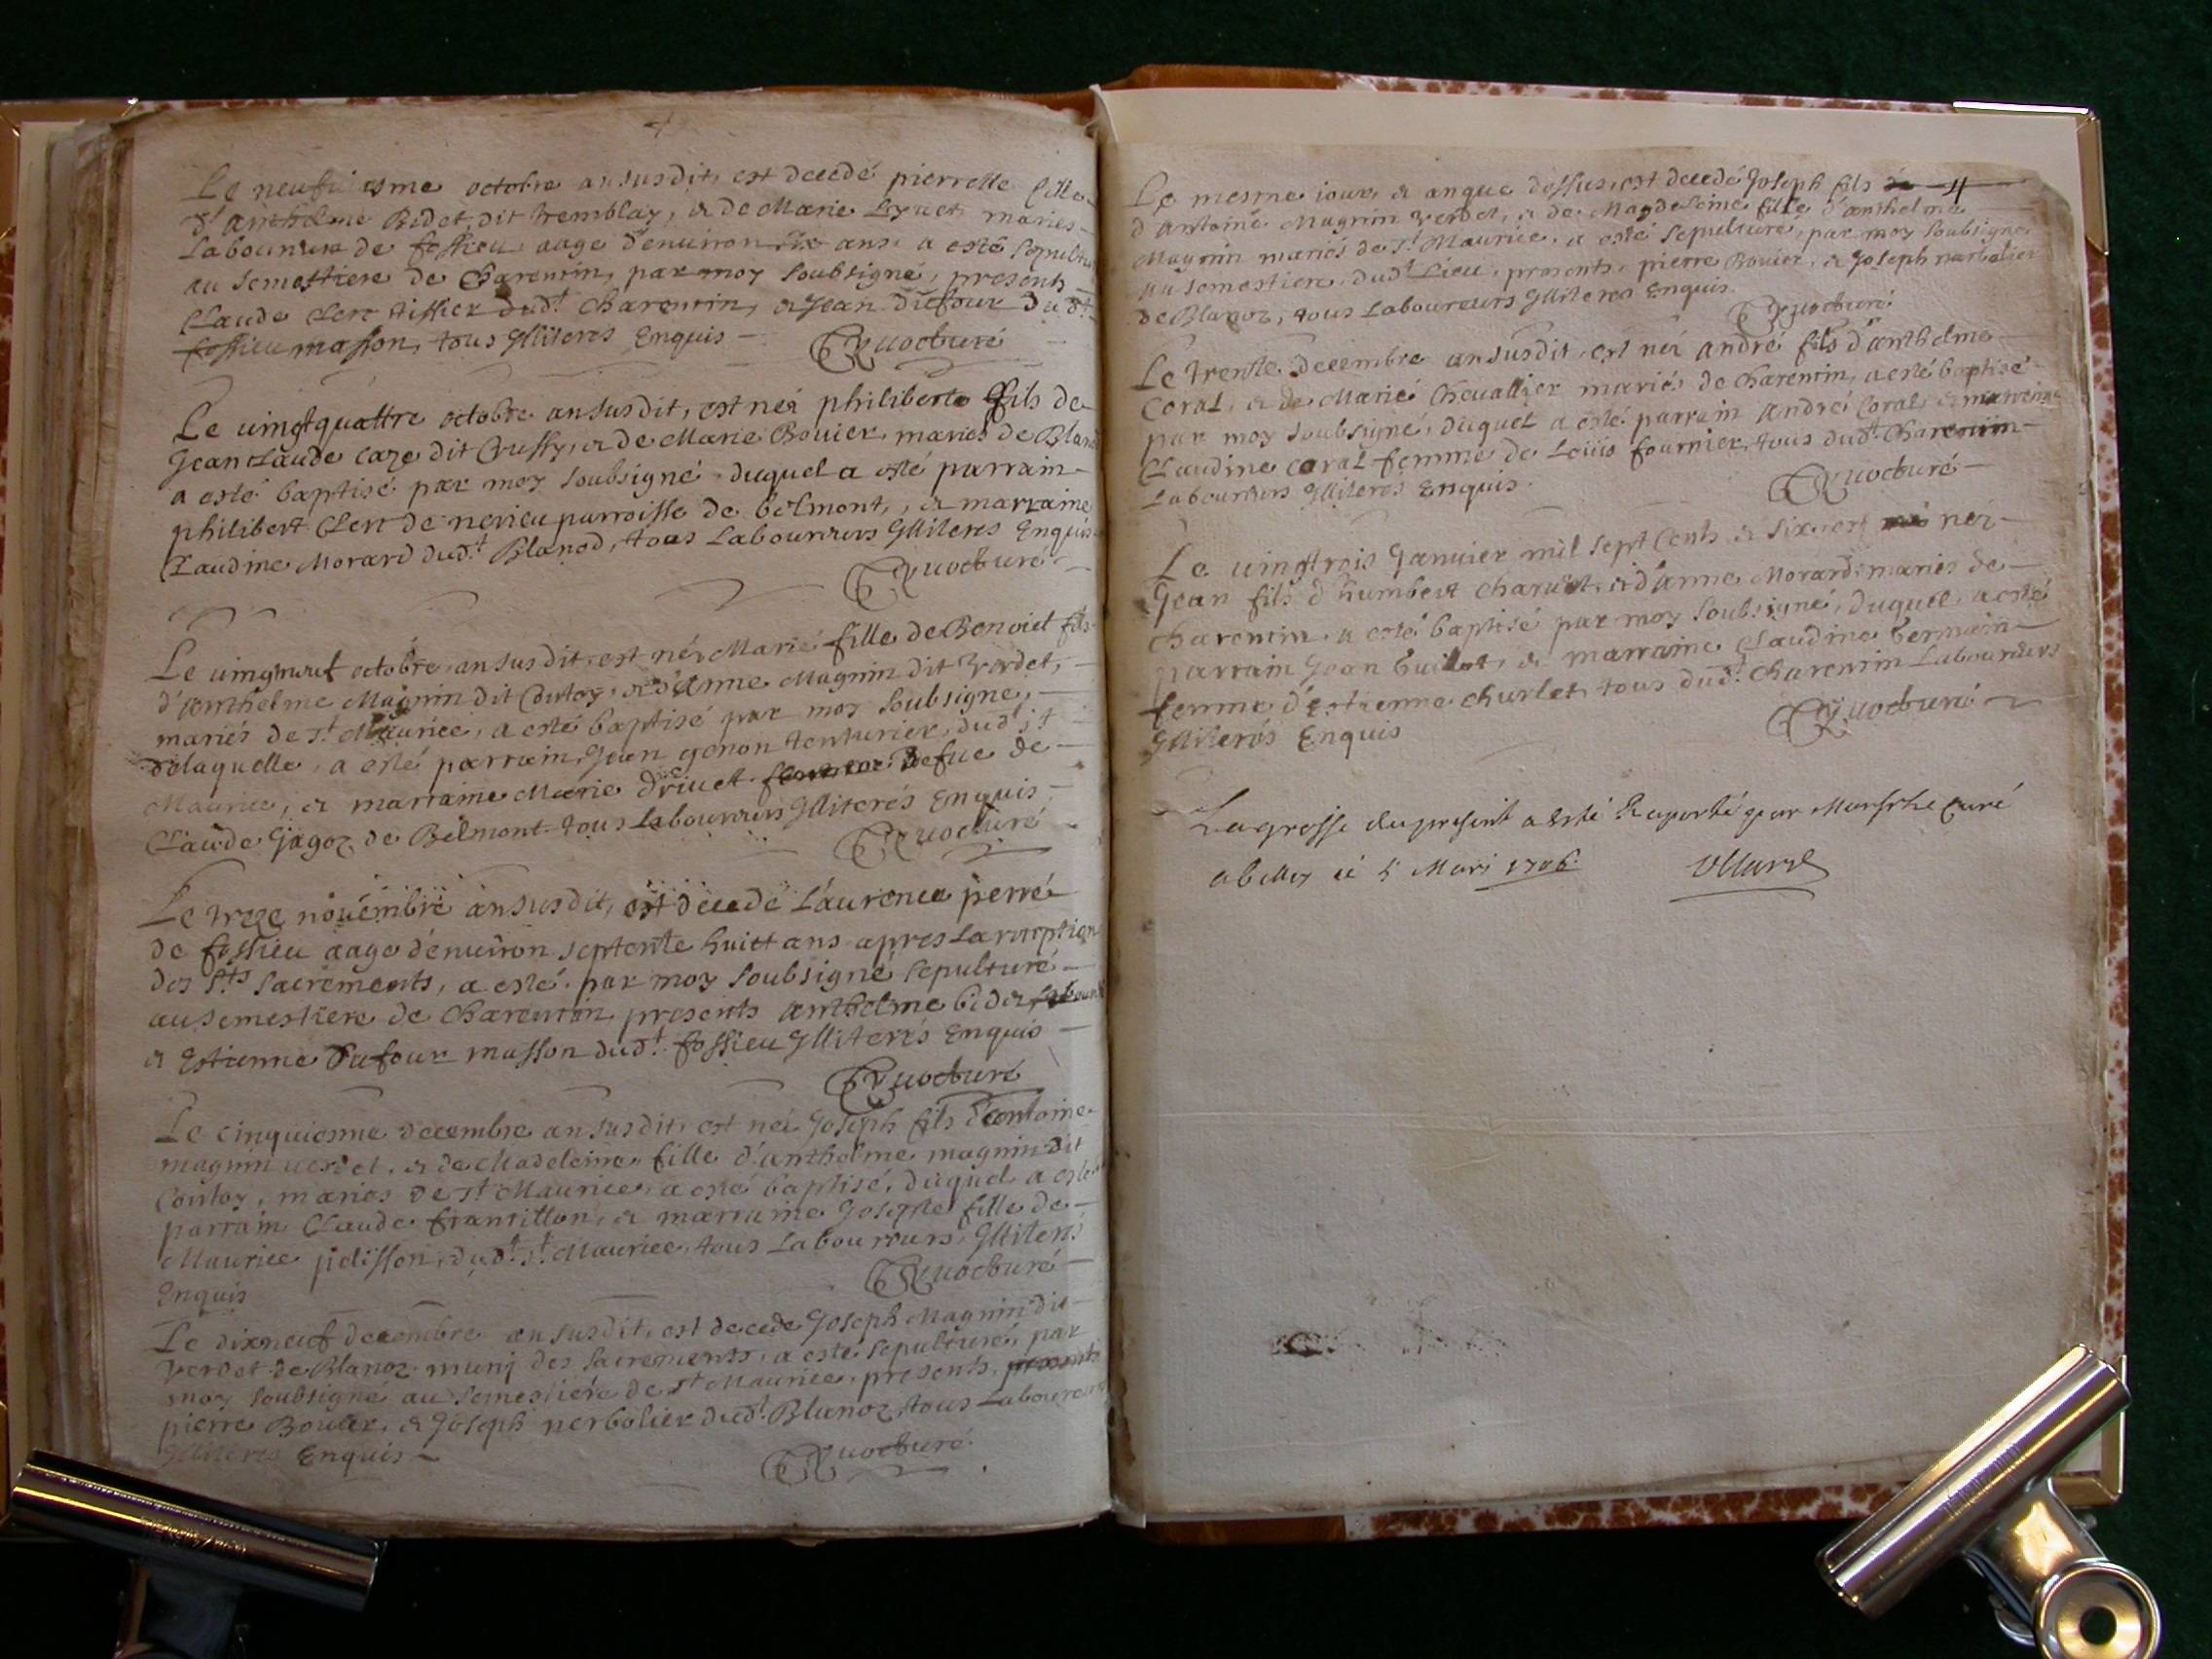 Le neufuiesme octobre an susdit, est decedé pierrette fille
d'anthelme Bidet, dit tremblay, & de Marie Lyuet mariés
Laboureur de fossieu aage d'enuiron six ans, a esté sepultu
au semestiere de Charentin, par moy soubsigné, presents
Claude Clerc tissier dudt Charentin, & Jean dufour dudt
fossieu masson, tous Illiteres Enquis
Le uingtquattre octobre an susdit, est néi philibert fils de
Jean Claude caze dit Crussy, & de Marie Bouier mariés de Blano
a esté baptisé par moy soubsigné duquel a esté parrain
philibert Clerc de nerieu parroisse de belmont, & marraine
Claudine Morard dudt Blanod, tous Laboureurs Illiteres Enquis
Le uingneuf octobre an susdit, est néi Marie fille de Benoict fils
d'Anthelme Magnin dit Coutoz, & d'Anne Magnin dit Verdet,
mariés de St Maurice, a esté baptisé par moy soubsigné,
delaquelle, a esté parrain, Jean genon dudt St
Maurice, & marraine Marie driuet defue de
Claude Gagoz de Belmont tous Laboureurs Illiterés Enquis
Le treze nouembre an susdit, est decedé Laurence perré
de fossieu aage d'enuiron septente huict ans apres la reception
des Sts Sacrements, a esté par moy soubsigné sepulturé
au semestiere de Charentin presents anthelme bidet
& Estienne Dufour masson dudt fossieu Illiterés Enquis
Le cinquiesme decembre an susdit, est néi Joseph fils d'antoine
magnin uerdet, & de Madeleine fille d'anthelme magnin dit
Coutoz, mariés de St Maurice, a esté baptisé, duquel a esté
parrain Claude frantillon, & marraine Josephe fille de
Maurice pelisson, dudt St Maurice, tous Laboureurs, Illiterés
Enquis
Le dixneuf decembre an susdit, est decedé Joseph Magnin dit
Verdet de Blanoz muni des sacrements, a esté sepulturé, par
moy soubsigné au semestiere de St Maurice, presents, presents
pierre Bouier, & Joseph nerbolier dudt Blanoz, tous Laboureurs
Illiteres Enquis
Le mesme iour, & an que dessus, est decedé Joseph fils de 4
d'Antoine Magnin verdet, & de Magdeleine fille d'anthelme
Magnin mariés de St Maurice, a esté sepulturé, par moy soubsigné
au semestiere, dudt Lieu, presents, pierre Bouier, & Joseph narbolier
de Blanoz, tous Laboureurs Illiteres Enquis
Le trente decembre an susdit, est néi andré fils d'anthelme
Coral, & de Marie Cheuallier mariés de Charentin, a esté baptisé
par moy soubsigné, duquel a esté parrain André Coral & marraine
Claudine coral femme de Loüis fournier, tous dudt Charentin
Laboureurs Illiteres Enquis
Le uingtrois Januier mil sept Cents & six, est néi
Jean fils d'humbert charuet, & d'anne Morard mariés de
Charentin, a esté baptisé par moy soubsigné, duquel a esté
parrain Jean Guillot, & marraine Claudine Germain
femme d'Estienne Churlet, tous dudt Charentin Laboureurs
Illiterés Enquis
La grosse du present a esté Raporté par curé
a belley ce 5 Mars 1706